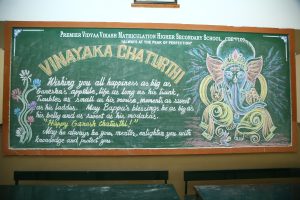 Premier Vidyaa Vikash Matriculation Higher Secondary School,
"Always at the peak of perfection"
VINAYAKA CHATURTHI
Wishing you all happiness as big as
Ganesha's appetite, life as long as his trunk,
Troubles as small as his mouse, moments as sweet
as his laddus. May Bappa's blessings be as big as
his belly and as sweet as his modakas.
"Happy Ganesh Chaturthi!"
May he always be your mentor, enlighten you with
knowledge and protect you